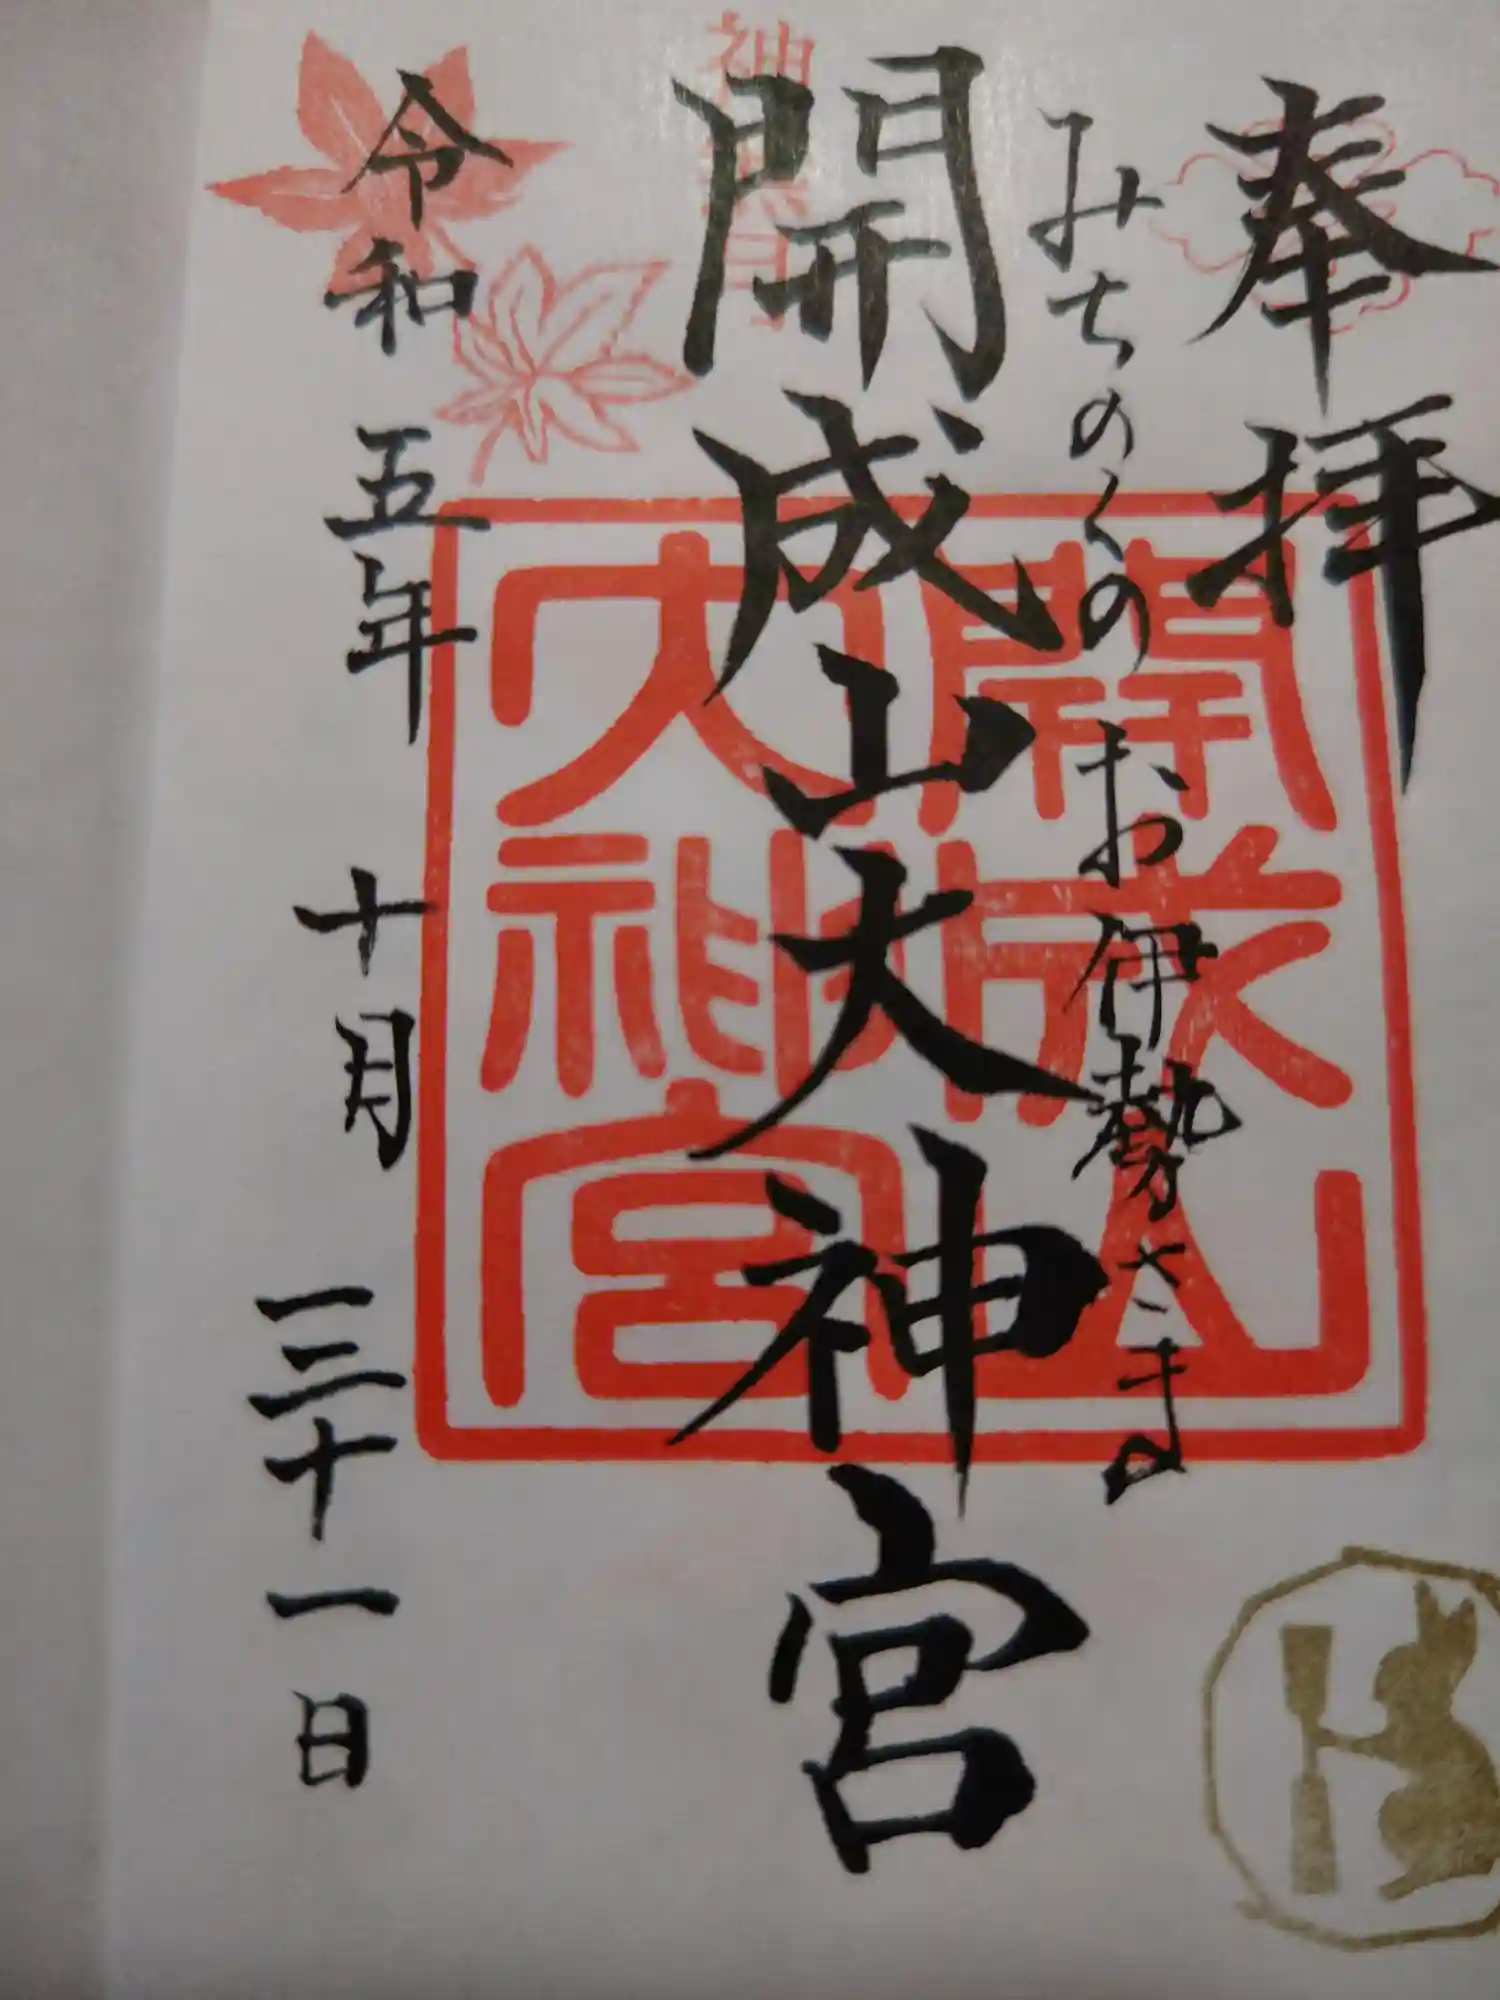 奉拝
みちのくのお伊勢さま
開成山大神宮
開成山
大神宮
令和五年十月三十一日